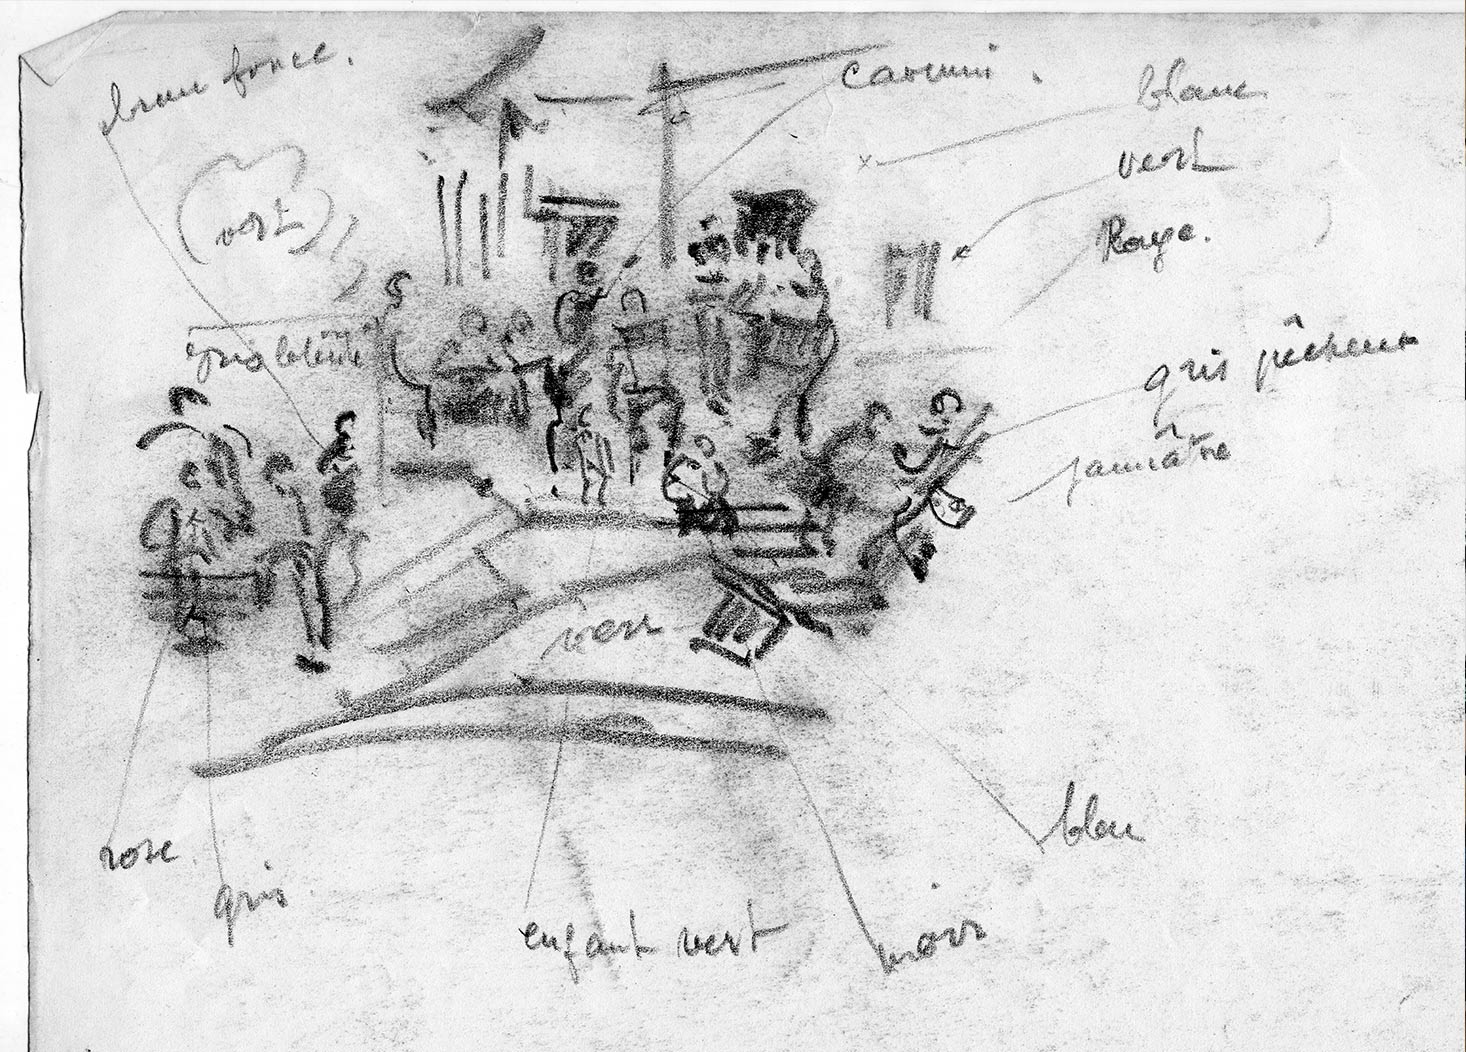 brun foncé.
carmin.
blanc
vert
Rouge.
vert
gris bleuté
gris pêcheur
jaunâtre
vert
rose
gris
bleu
enfant vert
noir